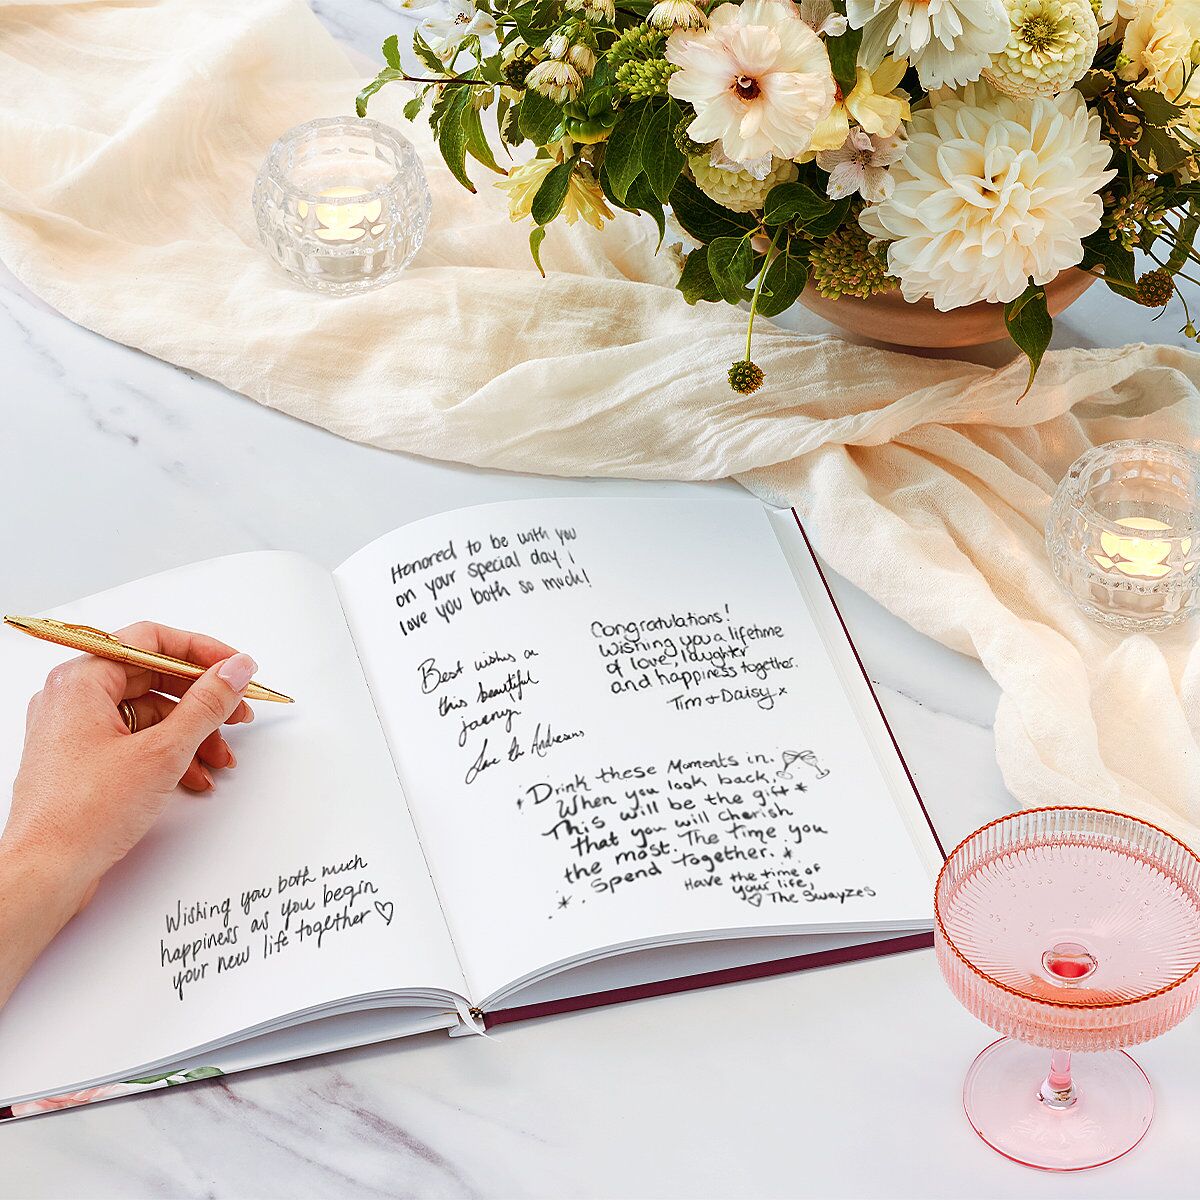 Wishing you both much
happiness as you begin
your new life together
Honored to be with you
on your special day I
love you both so much!
Congratulations!
Wishing you a lifetime
of love, laughter
and happiness together.
Tim + Daisy x
Best wishes on
this beautiful
journey
Love The Andersons
Drink these Moments in.
When you look back,
This will be the gift
that you will cherish
the most. The time you
spend together.
Have the time of
your life,
The Swayzes